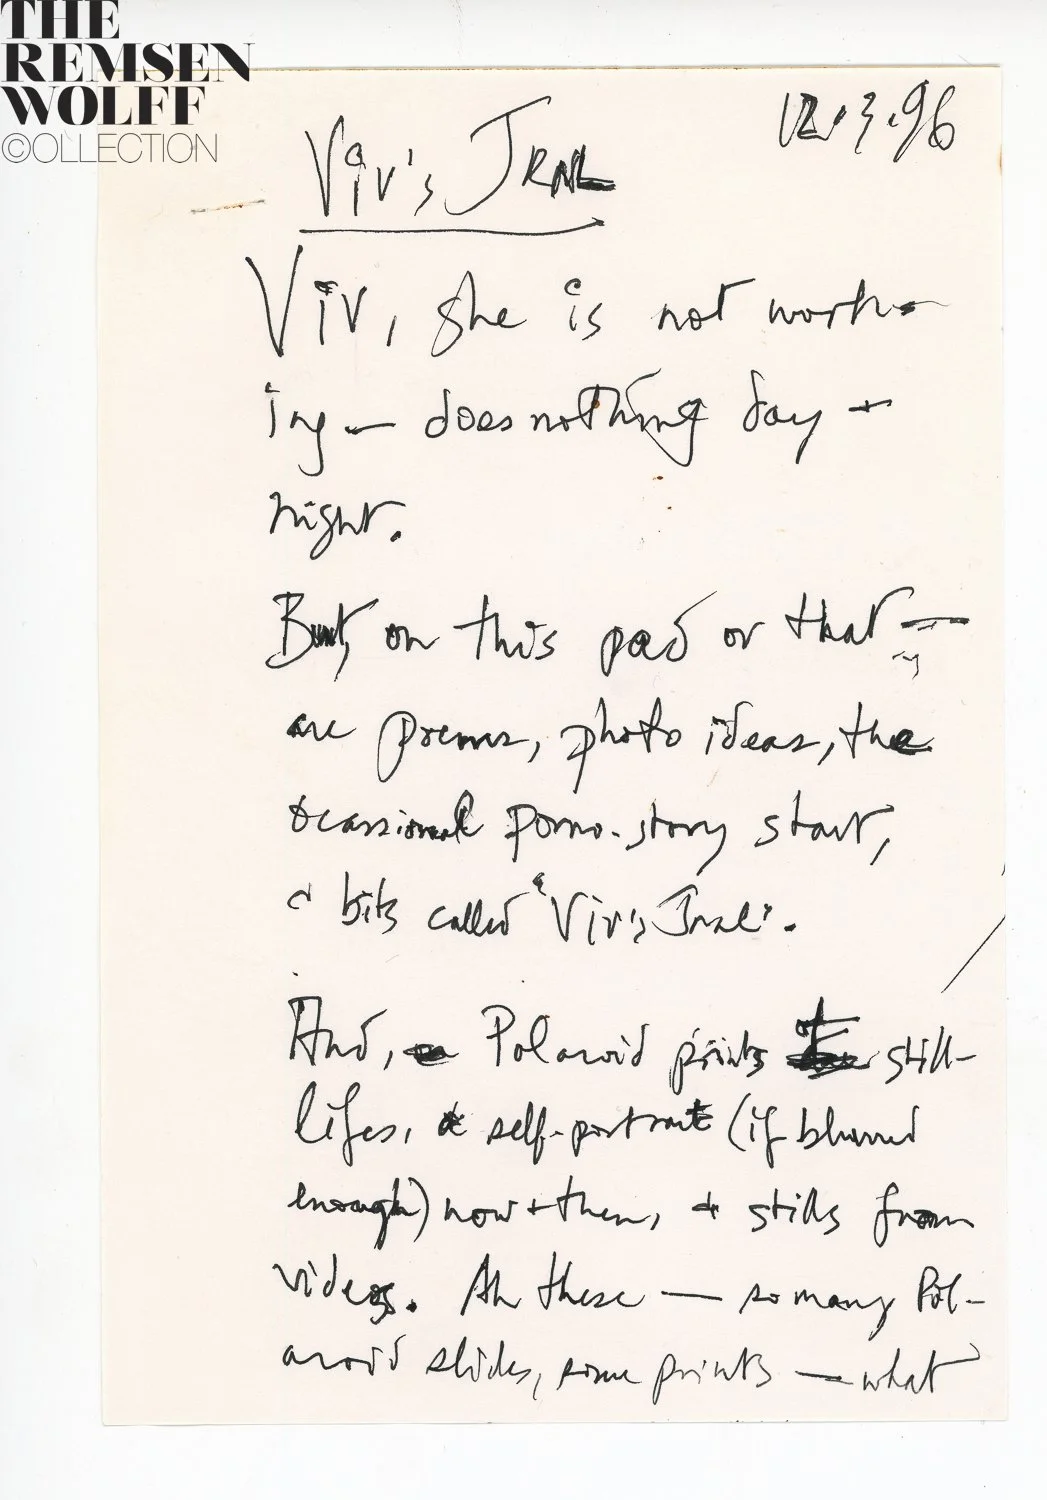 THE
REMSEN
WOLFF
©OLLECTION
12.3.96
Viv's JRNL
Viv, she is not work-
ing — does nothing day +
night.
But, on this pad or that —
are poems, photo ideas, the
ocassional porno-story start,
& bits called "Viv's Jrnl".
And, Polaroid prints of still-
lifes, a self-portrait (if blurred
enough) now + then, + stills from
videos. Ah these — so many Pol-
aroid slides, some prints — what